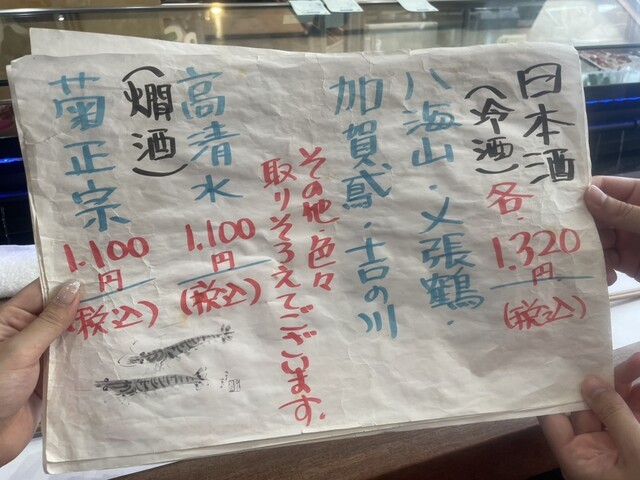 日本酒
(冷酒)
各、1.320円
(税込)
八海山・〆張鶴・
加賀鳶・吉の川
その他、色々
取りそろえてございます。
高清水
1.100円
(税込)
(燗酒)
菊正宗
1.100円
(税込)